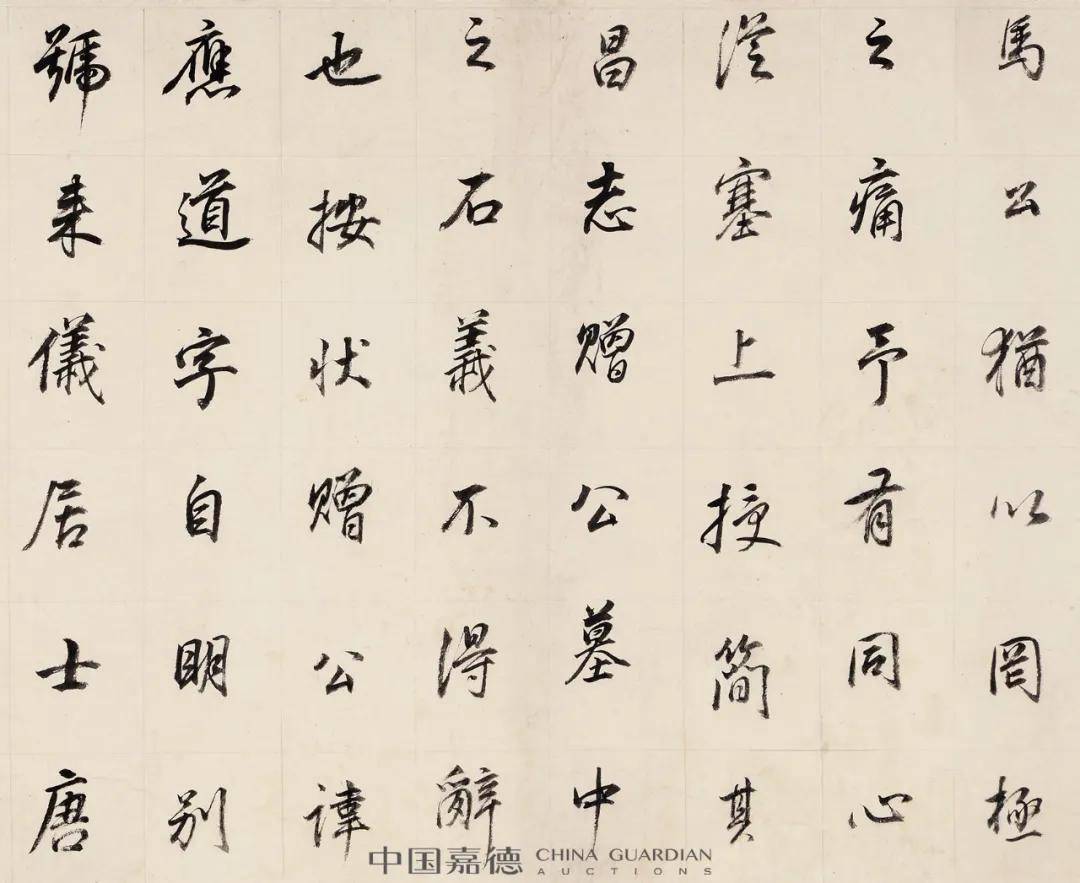 馬公猶以罔極
之痛予有同心
從塞上授簡其
昌志贈公墓中
之石義不得辭
也按狀贈公諱
應道字自明別
號来儀居士唐
中国嘉德 CHINA GUARDIAN AUCTIONS